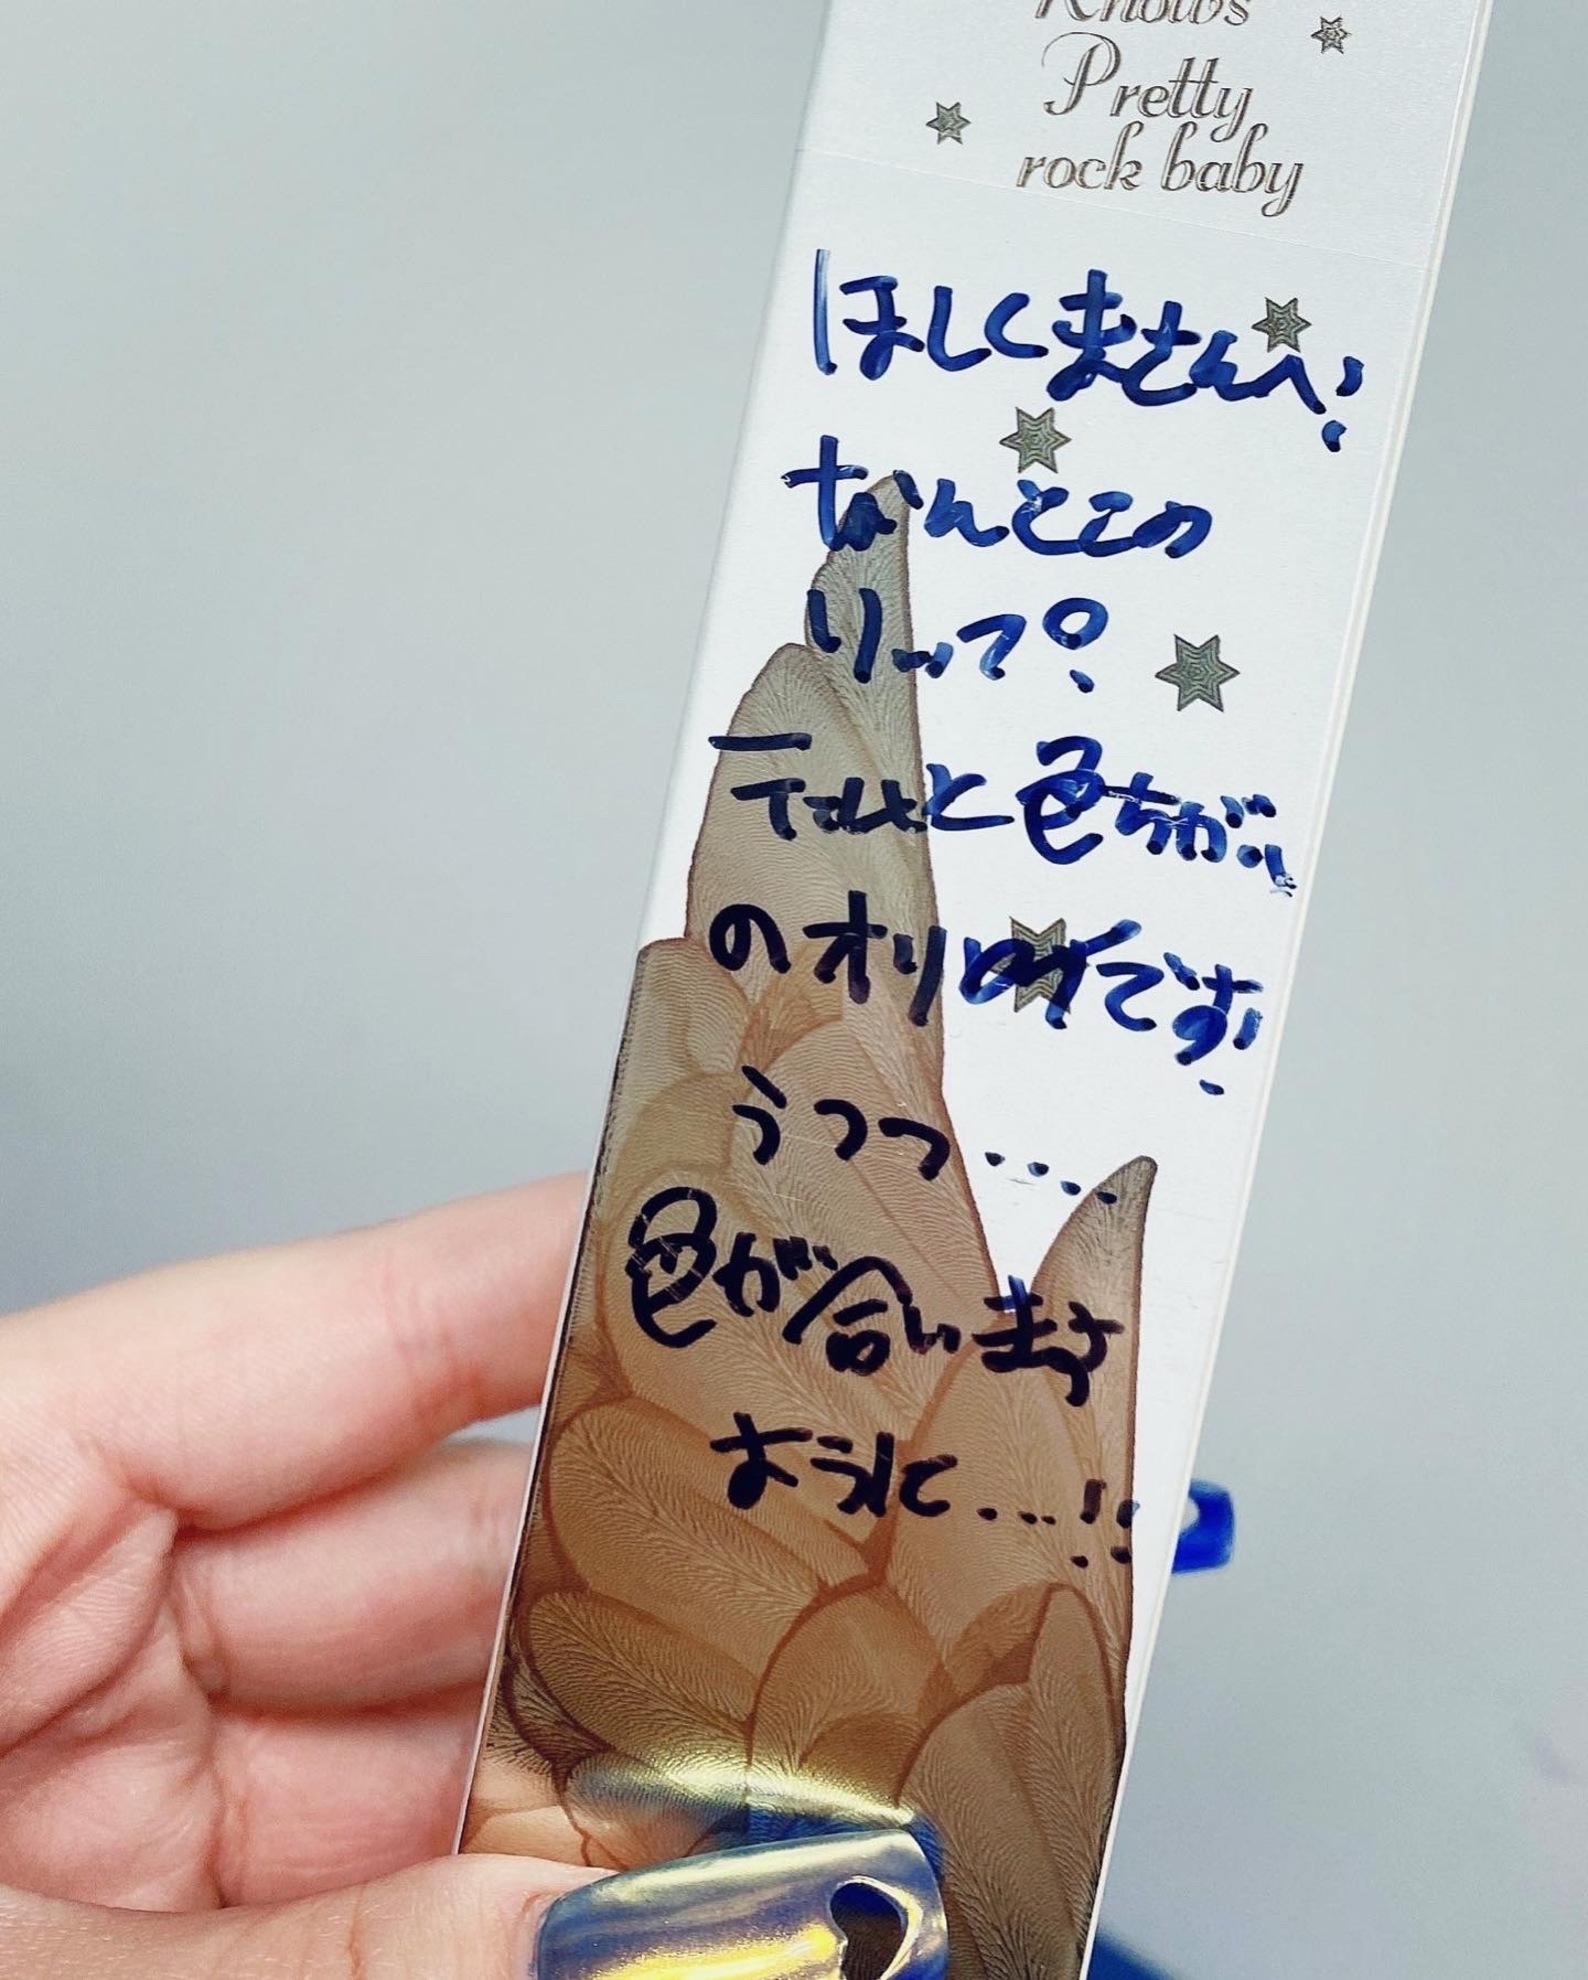 Knows
Pretty
rock baby
ほしくまさんへ！
なんとこの
リップ
と色ちがい
のオソロです！
うつつ....
色が合います
ように...！！